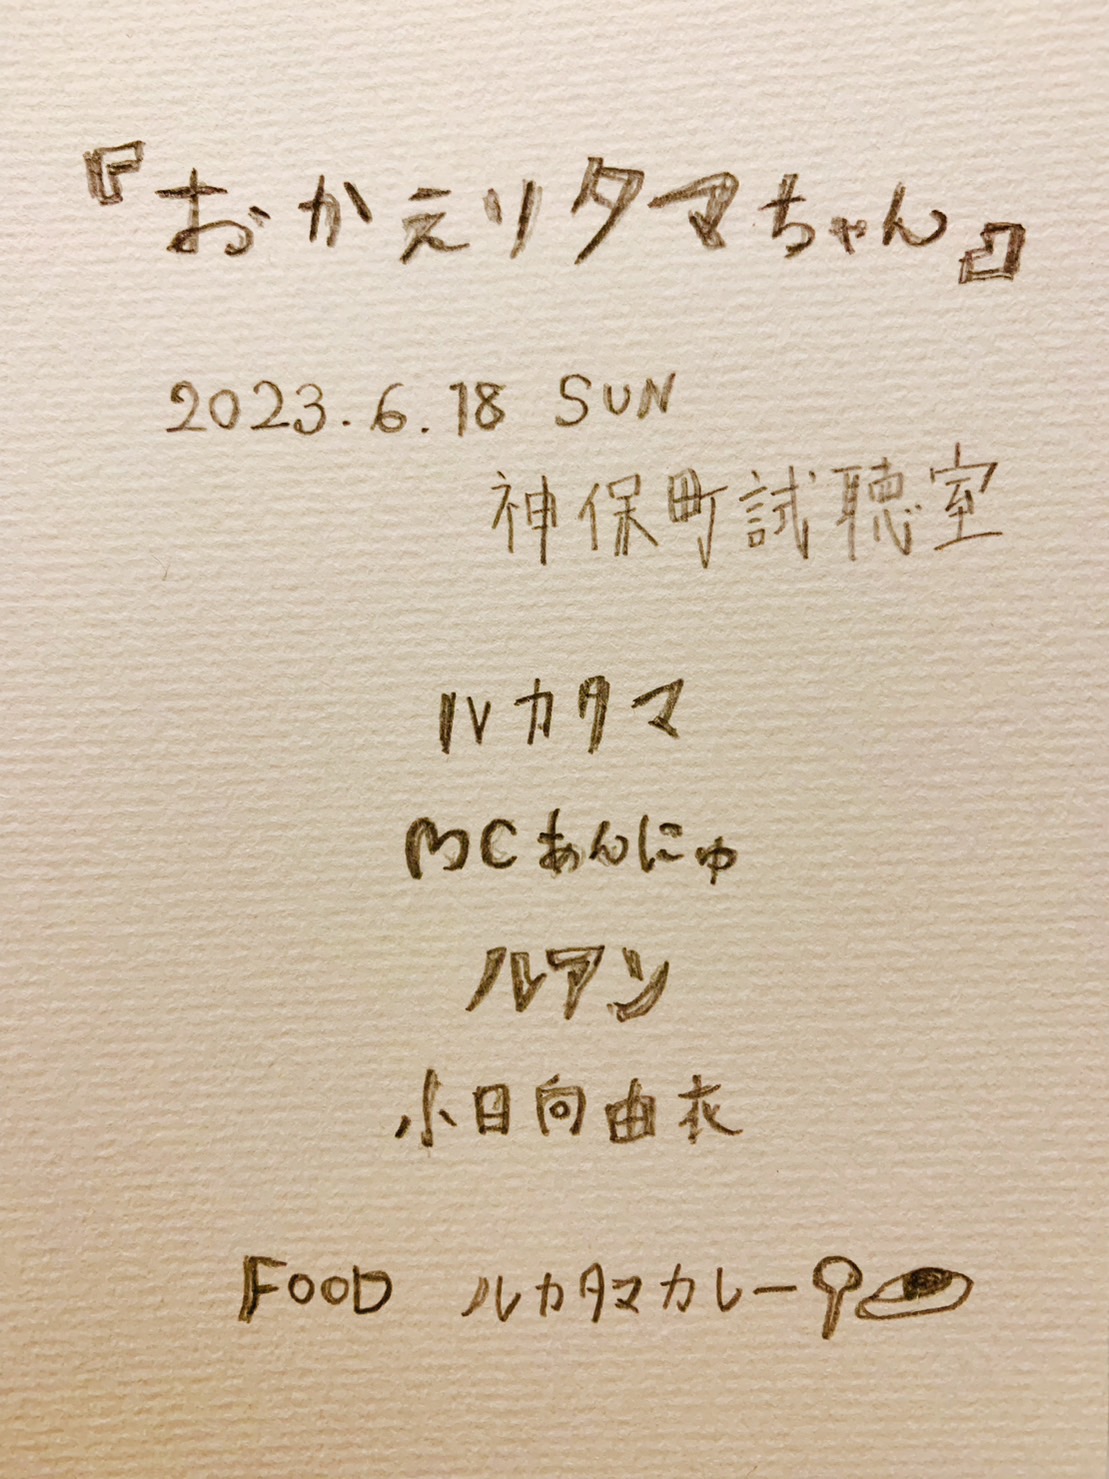 『おかえりタマちゃん』
2023.6.18 SUN
神保町試聴室
ルカタマ
MCあんにゅ
ルアン
小日向由衣
FOOD ルカタマカレー